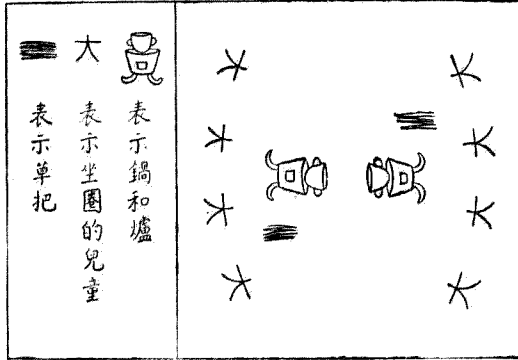 表示鍋和爐
大 表示坐圈的兒童
表示草把